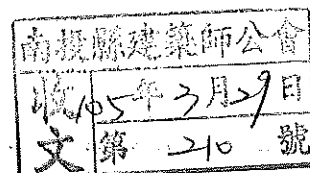 南投縣建築師公會
收文
105年3月29日
第 210 號